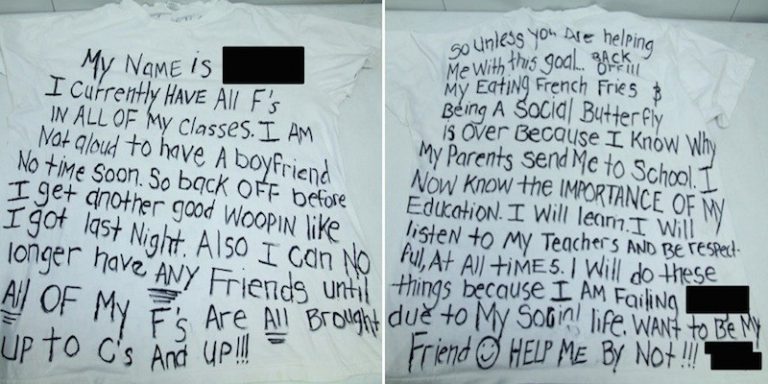 My NAME is
I CurrentLy HAVE All F's
IN ALL OF My Classes. I AM
Not aloud to have A boyfriend
No time Soon. So back OFF before
I get another good WOOPIN like
I got last Night. Also I can NO
longer have ANY Friends until
All OF My F's Are All Brought
UP to C's And UP!!!
So Unless you Are helping
Me With this goal... BACK OFF!!!
My EatiNg French Fries &
Being A Social Butterfly
is Over Because I Know Why
My Parents Send Me to School. I
NOW KNow the IMPORTANCE OF My
Education. I Will learn. I Will
listen to My Teachers AND Be respect-
ful, At All tiMES. I Will do these
things because I AM Failing
due to My Social life. WANT to Be My
Friend ☺ HELP ME By Not!!!